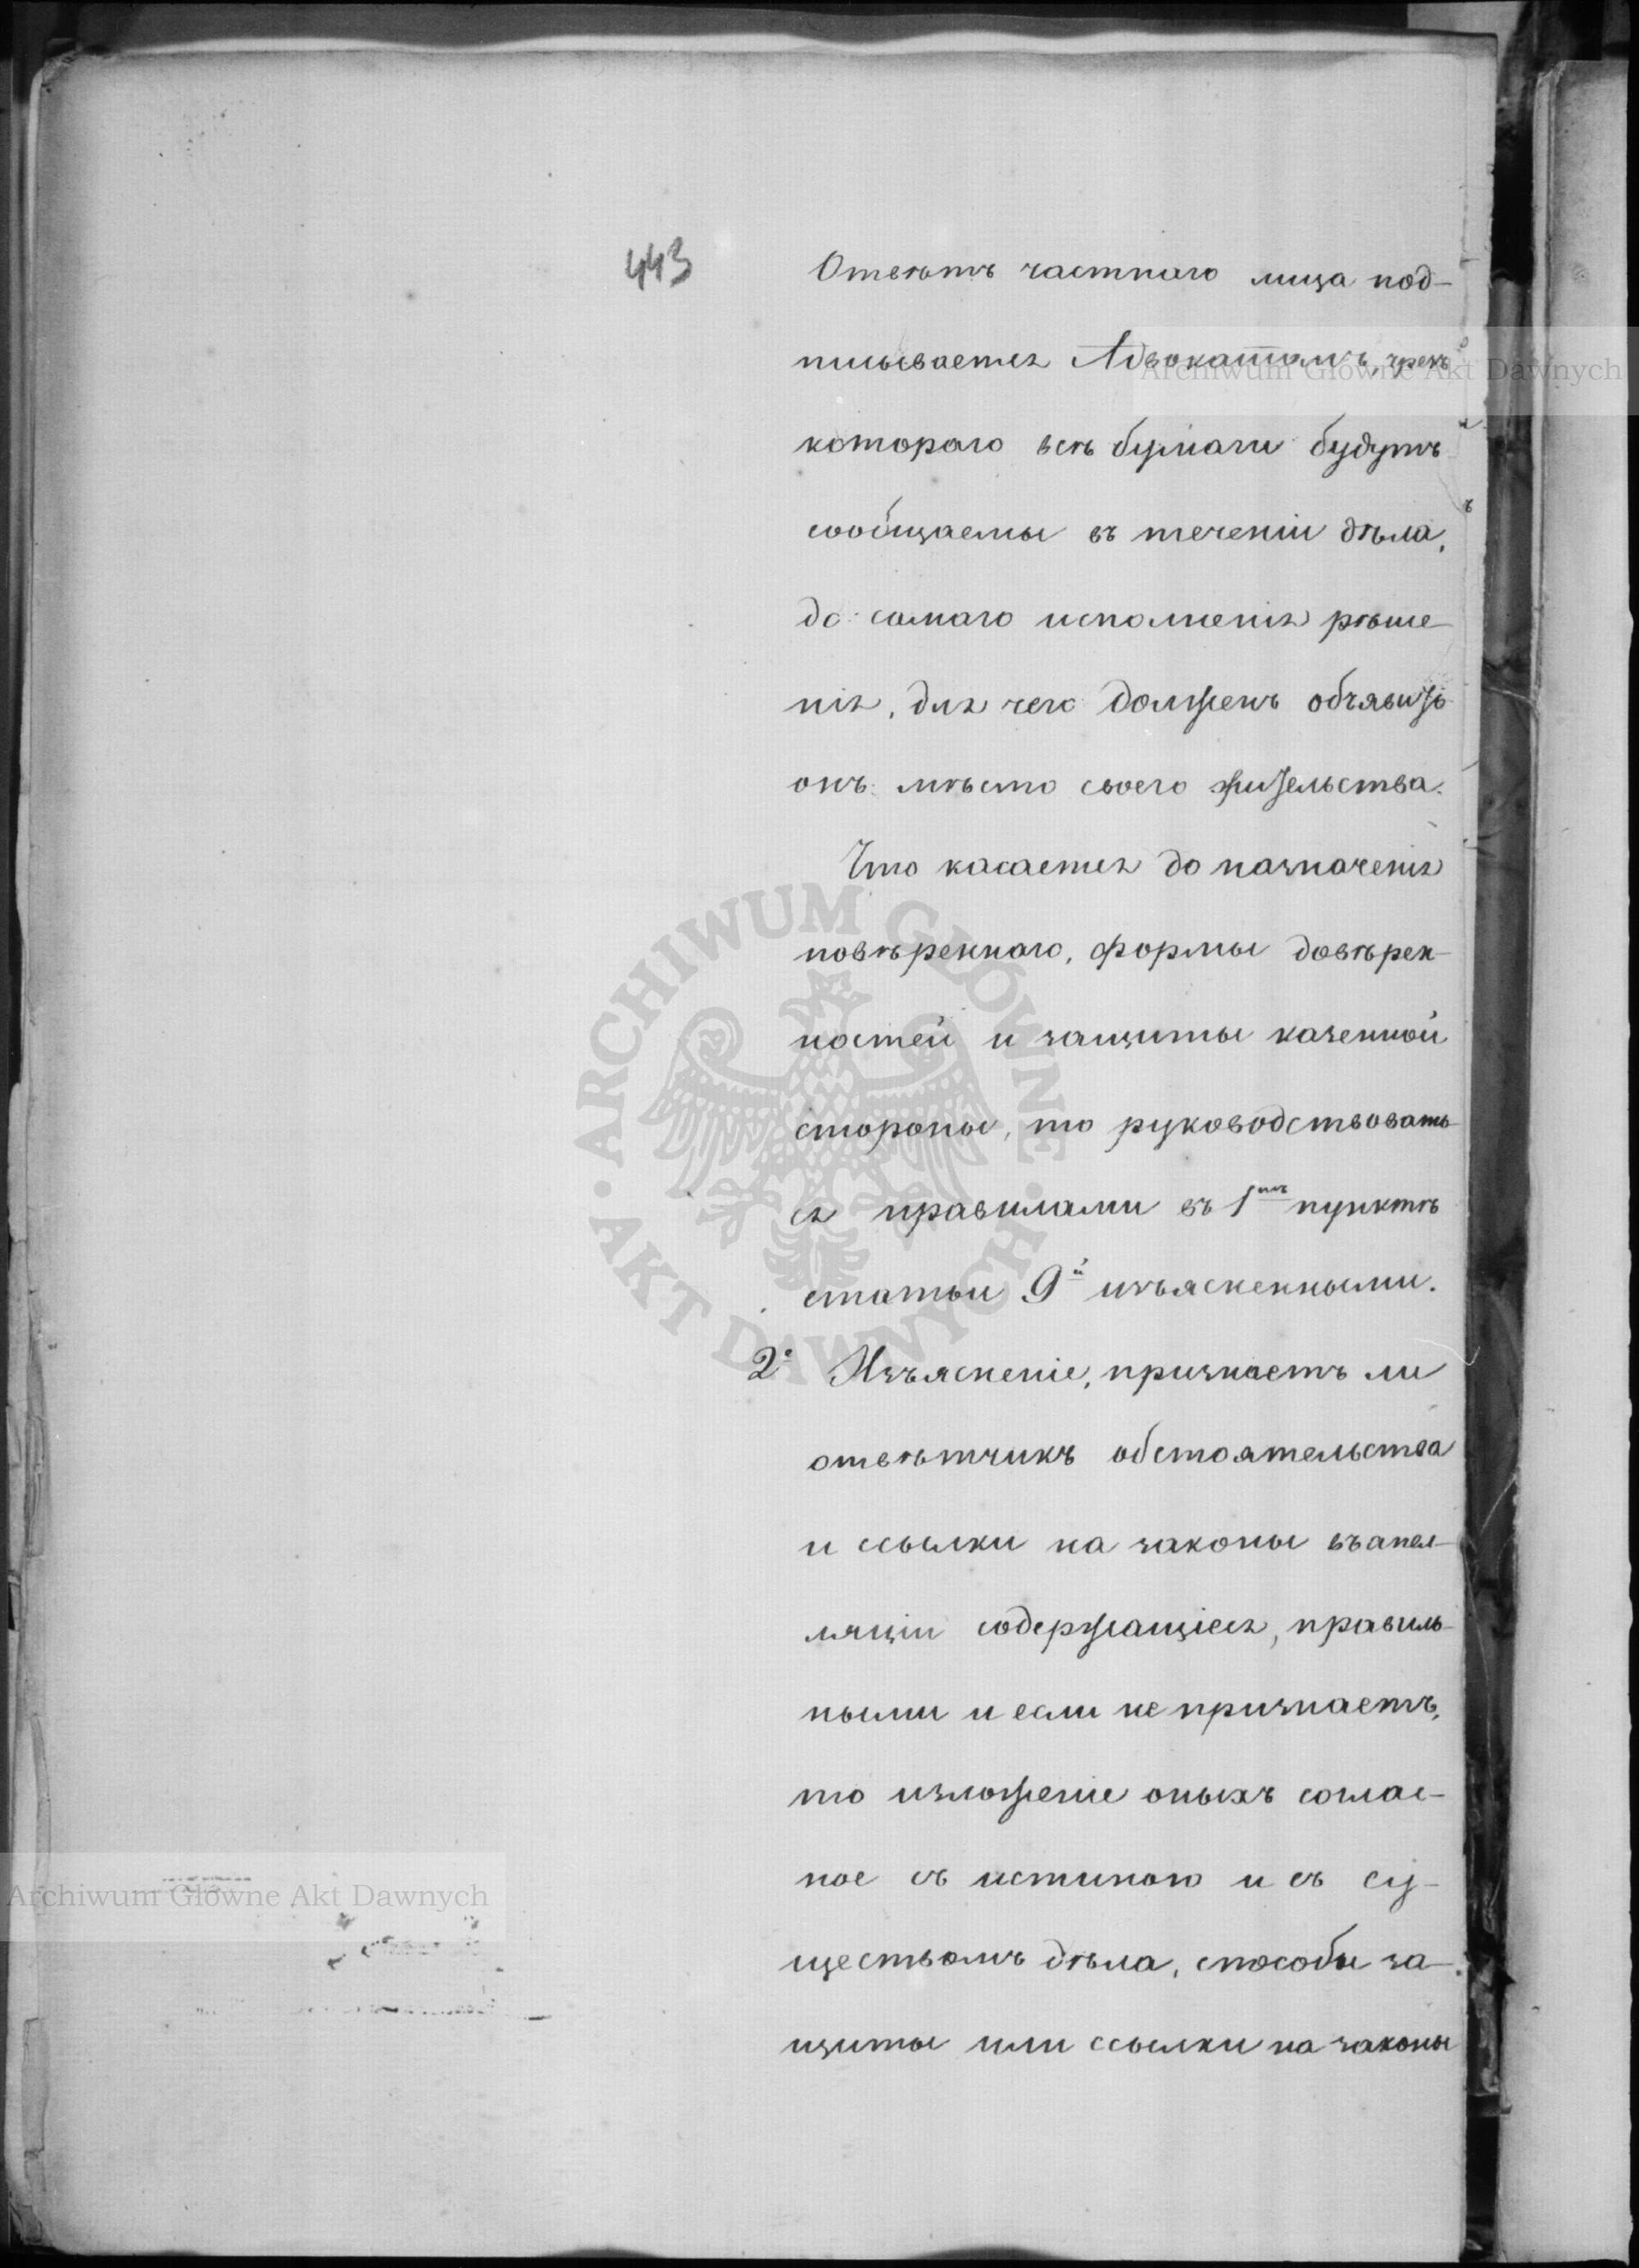 443
Отвѣтъ частнаго лица под-
писывается Адвокатомъ, чрезъ
котораго всѣ бумаги будутъ
сообщаемы въ теченіи дѣла,
до самаго исполненія рѣше-
нія, для чего долженъ объявить
онъ мѣсто своего жительства.
Что касается до назначенія
повѣреннаго, формы довѣрен-
ностей и защиты казенной
стороны, то руководствовать-
ся правилами въ 1мъ пунктѣ
статьи 9й изъясненными.
2е Изъясненіе, признаетъ ли
отвѣтчикъ обстоятельства
и ссылки на законы въ апел-
ляціи содержащіеся, правиль-
ными и если не признаетъ,
то изложеніе оныхъ соглас-
ное съ истиною и съ су-
ществомъ дѣла, способы за-
щиты или ссылки на законы
Archiwum Główne Akt Dawnych
ARCHIWUM GŁÓWNE
AKT DAWNYCH
Archiwum Główne Akt Dawnych